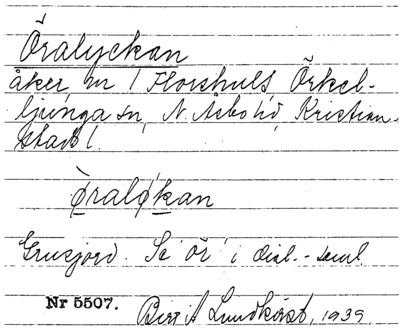 Öralyckan
åker m / Florshult, Örkel-
ljunga sn, N. Åsbo hd, Kristian-
stads l.
öralø̀kan
Grusjord. Se ör i dial.-saml.
Nr 5507. Birgit Lundkvist, 1939